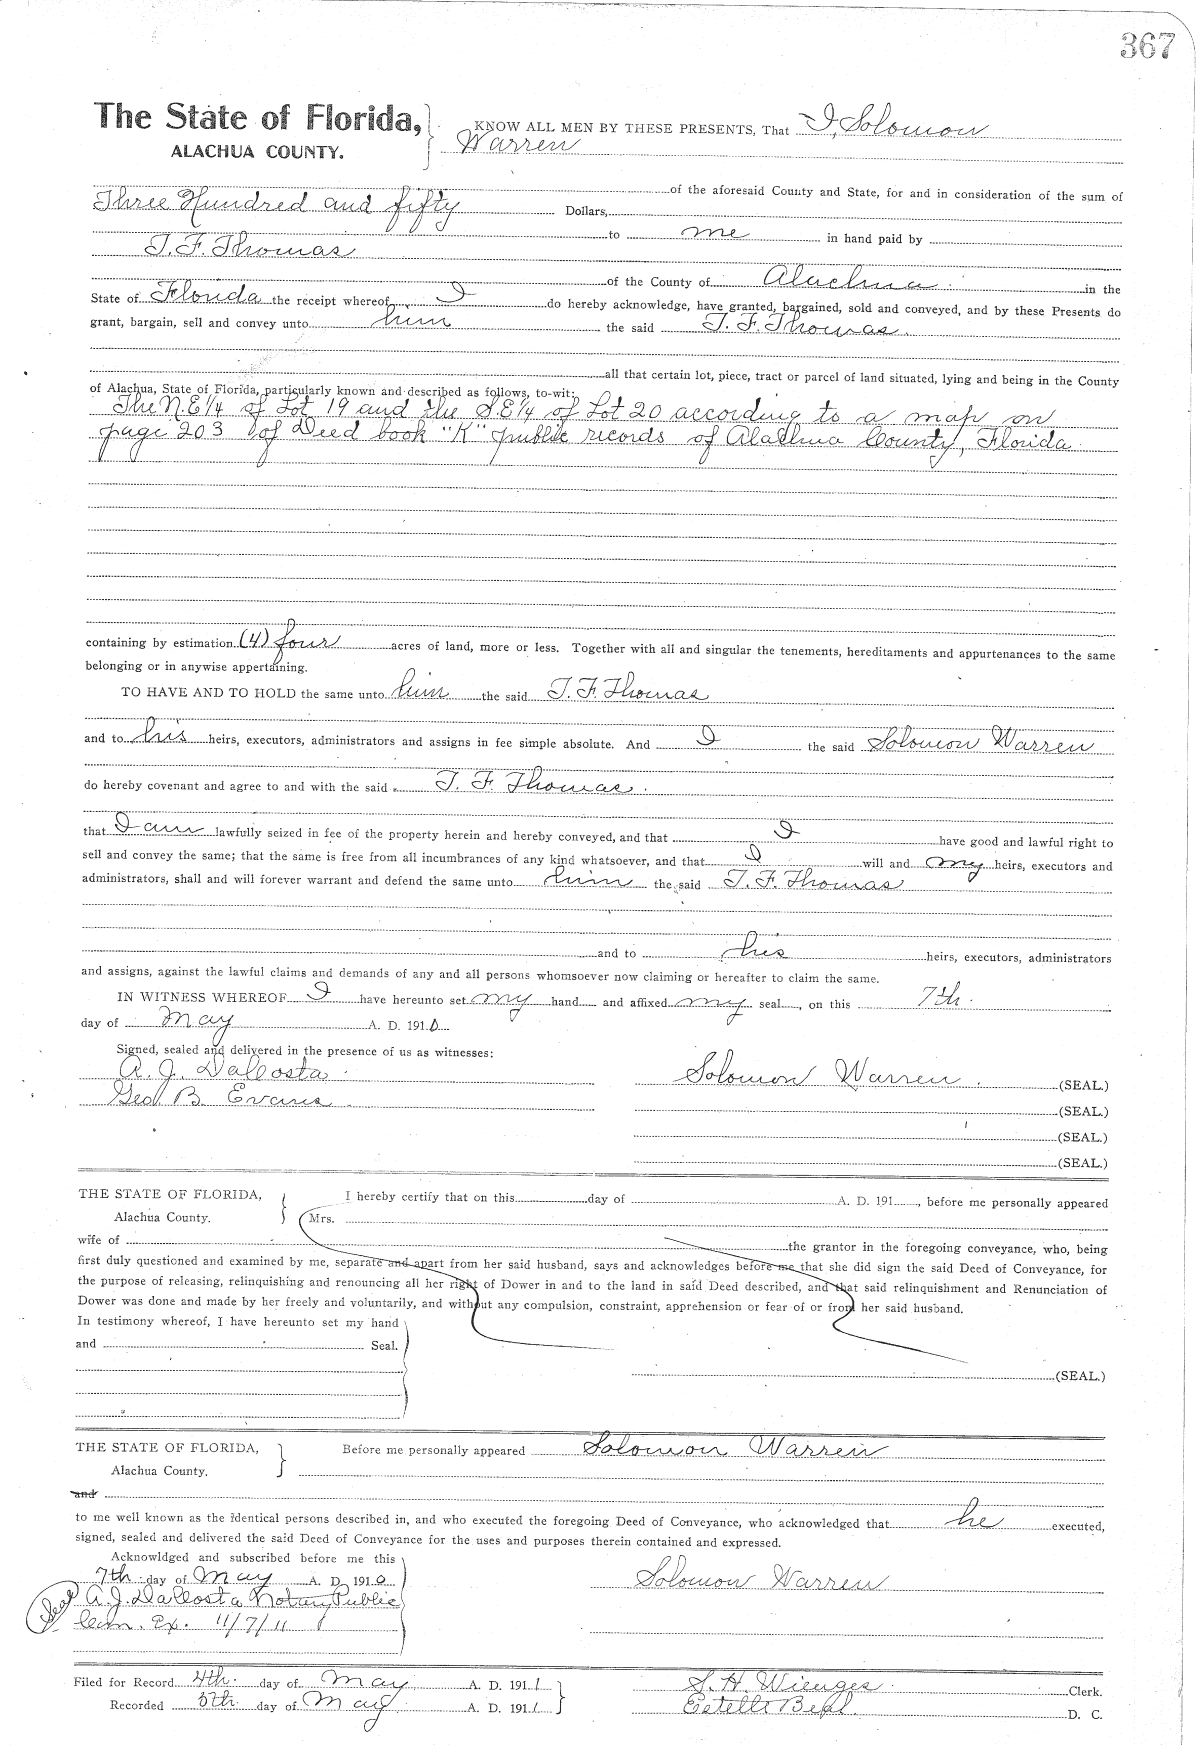 367
The State of Florida,
ALACHUA COUNTY.
KNOW ALL MEN BY THESE PRESENTS, That I, Solomon
Warren
of the aforesaid County and State, for and in consideration of the sum of
Three Hundred and fifty Dollars,
to me in hand paid by
T. F. Thomas
of the County of Alachua in the
State of Florida the receipt whereof I do hereby acknowledge, have granted, bargained, sold and conveyed, and by these Presents do
grant, bargain, sell and convey unto him the said T. F. Thomas
all that certain lot, piece, tract or parcel of land situated, lying and being in the County
of Alachua, State of Florida, particularly known and described as follows, to-wit:
The N.E 1/4 of Lot 19 and the S.E 1/4 of Lot 20 according to a map on
page 203 of Deed book "K" public records of Alachua County, Florida.
containing by estimation (4) four acres of land, more or less. Together with all and singular the tenements, hereditaments and appurtenances to the same
belonging or in anywise appertaining.
TO HAVE AND TO HOLD the same unto him the said T. F. Thomas
and to his heirs, executors, administrators and assigns in fee simple absolute. And I the said Solomon Warren
do hereby covenant and agree to and with the said T. F. Thomas.
that I am lawfully seized in fee of the property herein and hereby conveyed, and that I have good and lawful right to
sell and convey the same; that the same is free from all incumbrances of any kind whatsoever, and that I will and my heirs, executors and
administrators, shall and will forever warrant and defend the same unto him the said T. F. Thomas
and to his heirs, executors, administrators
and assigns, against the lawful claims and demands of any and all persons whomsoever now claiming or hereafter to claim the same.
IN WITNESS WHEREOF I have hereunto set my hand and affixed my seal, on this 7th.
day of May A. D. 1910
Signed, sealed and delivered in the presence of us as witnesses:
A. J. DaCosta
Solomon Warren (SEAL.)
Geo B. Evans
(SEAL.)
(SEAL.)
(SEAL.)
THE STATE OF FLORIDA,
Alachua County.
I hereby certify that on this day of A. D. 191 , before me personally appeared
Mrs.
wife of the grantor in the foregoing conveyance, who, being
first duly questioned and examined by me, separate and apart from her said husband, says and acknowledges before me that she did sign the said Deed of Conveyance, for
the purpose of releasing, relinquishing and renouncing all her right of Dower in and to the land in said Deed described, and that said relinquishment and Renunciation of
Dower was done and made by her freely and voluntarily, and without any compulsion, constraint, apprehension or fear of or from her said husband.
In testimony whereof, I have hereunto set my hand
and Seal.
(SEAL.)
THE STATE OF FLORIDA,
Alachua County.
Before me personally appeared Solomon Warren
and
to me well known as the identical persons described in, and who executed the foregoing Deed of Conveyance, who acknowledged that he executed,
signed, sealed and delivered the said Deed of Conveyance for the uses and purposes therein contained and expressed.
Acknowldged and subscribed before me this
7th day of May A. D. 1910
Solomon Warren
Seal
A. J. DaCosta Notary Public
Com. Ex. 11/7/11
Filed for Record 4th. day of May A. D. 1911
S. H. Wienges Clerk.
Recorded 5th. day of May A. D. 1911
Estelle D. C.